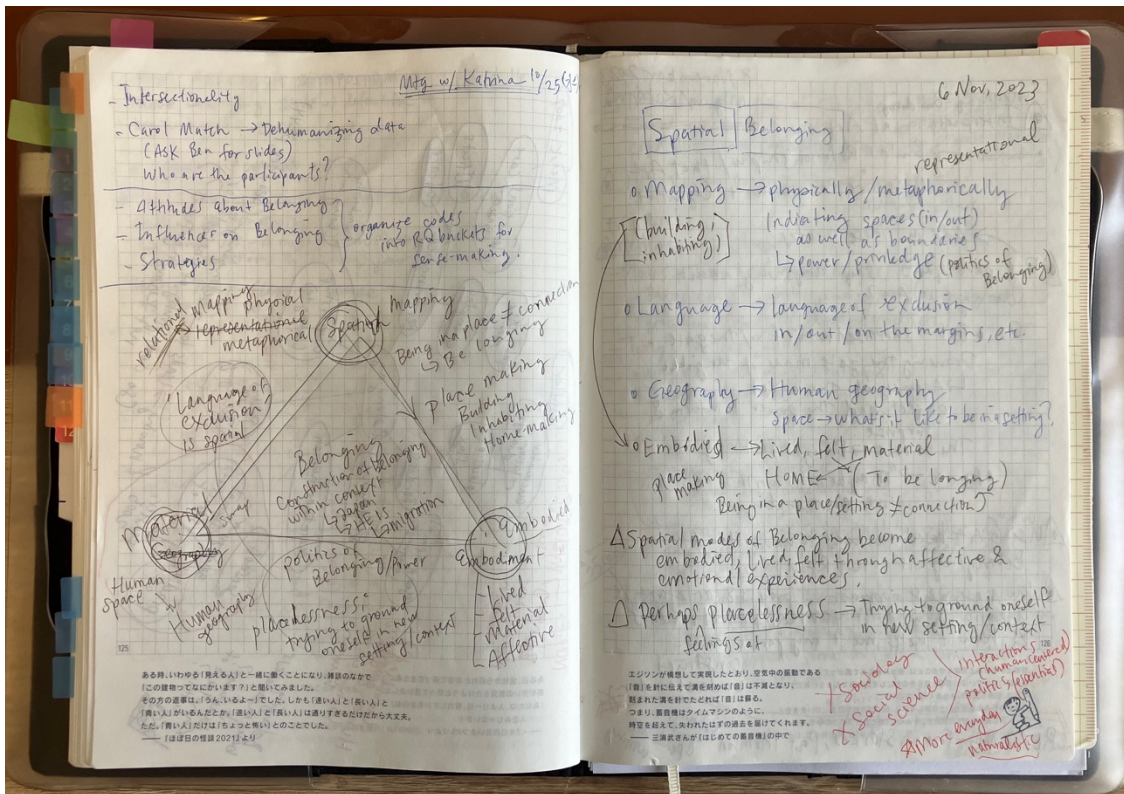 Mtg w/ Katrina 10/25
- Intersectionality
- Carol Match → Dehumanizing data
(ASK Ben for slides)
Who are the participants?
- Attitudes about Belonging
- Influences on Belonging
- Strategies
organize codes
into RQ buckets for
sense-making.
relational
mapping
physical
representational
metaphorical
Spatial
mapping
Being in a place ≠ connection
↳ Be longing
place making
Building
Inhabiting
Home-making
'Language of
exclusion'
is spatial
Belonging
Construction of belonging
within context
↳ Japan
↳ HE is
↳ migration
Material
Geography
swap
Human
space
Human
geography
politics of
Belonging/Power
placelessness:
trying to ground
oneself in new
setting/context
Embodied
Embodiment
- Lived
- Felt
- Material
- Affective
125
ある時、いわゆる「見える人」と一緒に働くことになり、雑談のなかで
「この建物ってなにかいます?」と聞いてみました。
その方の返事は、「うん、いるよー」でした。しかも「速い人」と「長い人」と
「青い人」がいるんだとか。「速い人」と「長い人」は通りすぎるだけだから大丈夫。
ただ、「青い人」だけは「ちょっと怖い」とのことでした。
――『ほぼ日の怪談2021』より
6 Nov, 2023
Spatial Belonging
representational
o Mapping → physically/metaphorically
[(building,
inhabiting)]
Indiating spaces (in/out)
as well as boundaries
↳ power/priviledge (politics of
Belonging)
o Language → language of exclusion
in/out/on the margins, etc.
o Geography → Human geography
Space → what's it like to be in a setting?
o Embodied → Lived, felt, material
place
making
HOME ← (To be longing)
Being in a place/setting ≠ connection
△ Spatial modes of Belonging become
embodied, lived, felt through affective &
emotional experiences.
△ Perhaps placelessness → Trying to ground oneself
feelings of
in new setting/context
126
エジソンが構想して実現したとおり、空気中の振動である
「音」を針に伝えて溝を刻めば「音」は不滅となり、
刻まれた溝を針でたどれば「音」は蘇る。
つまり、蓄音機はタイムマシンのように、
時空を超えて、失われたはずの過去を届けてくれます。
――三浦武さんが『はじめての蓄音機』の中で
Sociology
Social
science
interactions
(human centered)
politics (essential)
More everyday
naturalistic